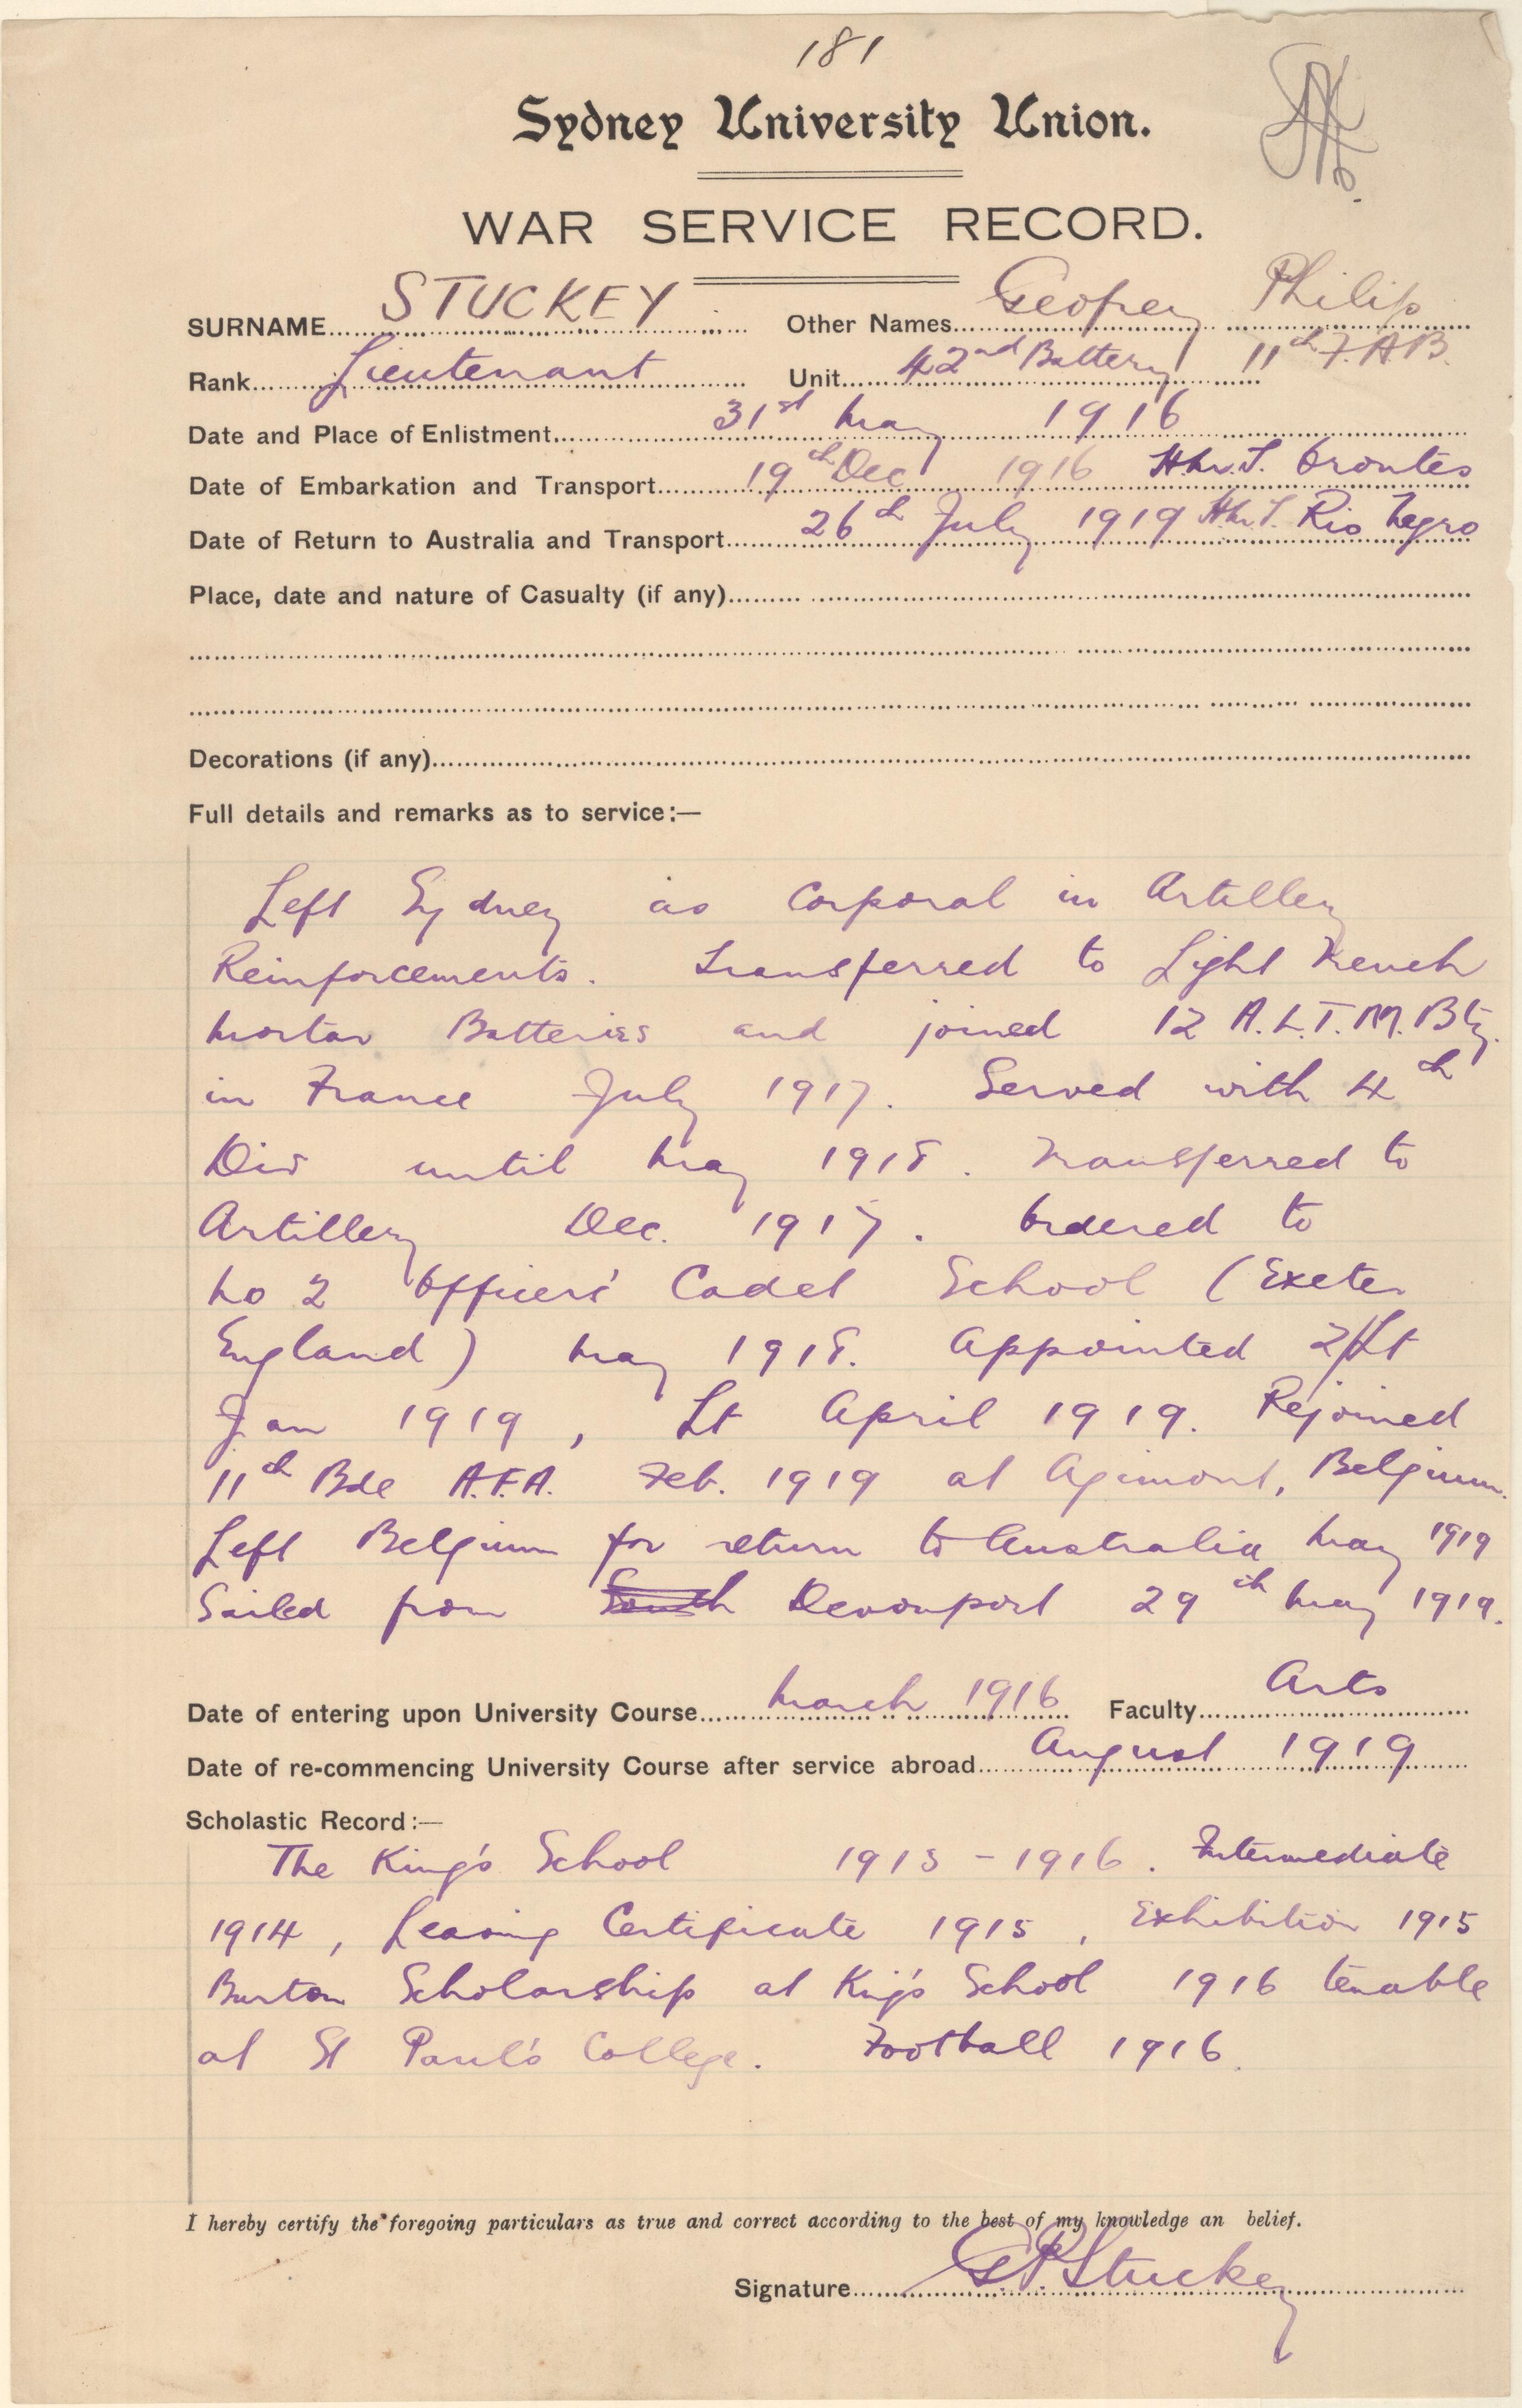 181
Sydney University Union.
WAR SERVICE RECORD.
SURNAME STUCKEY Other Names Geofrey Philip
Rank Lieutenant Unit 42nd Battery 11th F.A.B.
Date and Place of Enlistment 31st May 1916
Date of Embarkation and Transport 19th Dec 1916 H.M.T. Orontes
Date of Return to Australia and Transport 26th July 1919 H.M.T. Rio Negro
Place, date and nature of Casualty (if any)
Decorations (if any)
Full details and remarks as to service:—
Left Sydney as Corporal in Artillery
Reinforcements. Transferred to Light Trench
Mortar Batteries and joined 12 A.L.T.M. Bty.
in France July 1917. Served with 4th
Div until May 1918. Transferred to
Artillery Dec. 1917. Ordered to
No 2 Officers' Cadet School (Exeter
England) May 1918. Appointed 2/Lt
Jan 1919, Lt April 1919. Rejoined
11th Bde A.F.A. Feb. 1919 at Agimont, Belgium.
Left Belgium for return to Australia May 1919
Sailed from South Devonport 29th May 1919.
Date of entering upon University Course March 1916 Faculty Arts
Date of re-commencing University Course after service abroad August 1919
Scholastic Record:—
The King's School 1913 - 1916. Intermediate
1914, Leaving Certificate 1915, Exhibition 1915
Burton Scholarship at King's School 1916 tenable
at St Paul's College. Football 1916.
I hereby certify the foregoing particulars as true and correct according to the best of my knowledge an belief.
Signature G.P. Stuckey